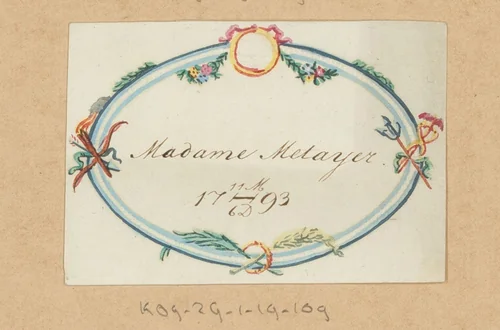 Madame Metayer.
17 11M/6D 93
KOG-ZG-1-19-109